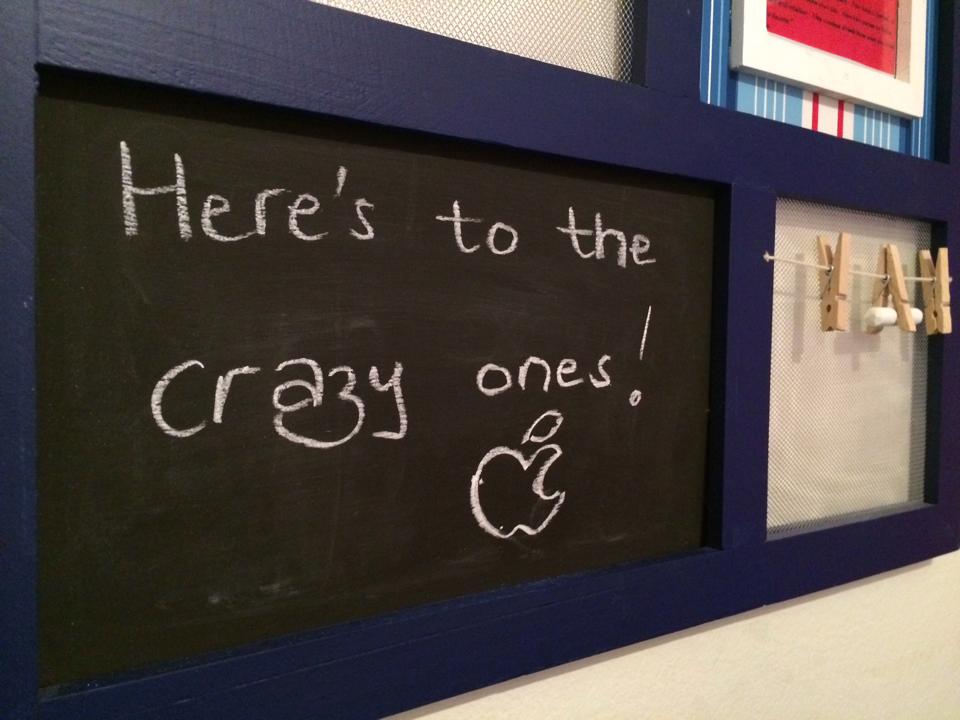 Here's to the
crazy ones!